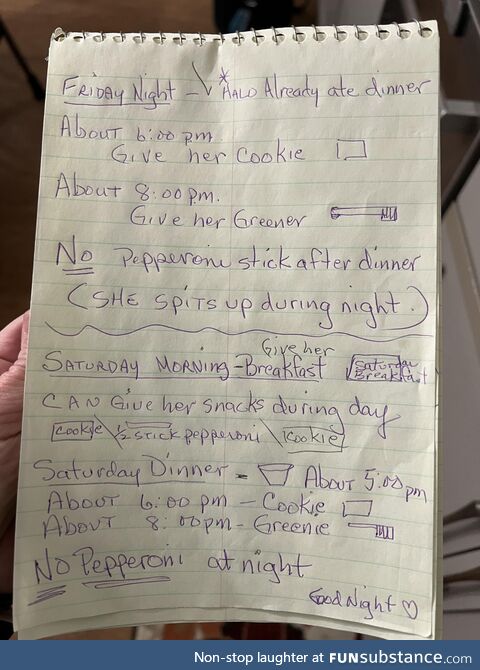 Friday Night - * Halo Already ate dinner
About 6:00 pm
Give her Cookie
About 8:00 pm.
Give her Greener
No Pepperoni stick after dinner
(She spits up during night.)
Saturday Morning - Give her Breakfast Saturday Breakfast
Can Give her snacks during day
Cookie \ 1/2 stick pepperoni \ Cookie
Saturday Dinner - About 5:00 pm
About 6:00 pm - Cookie
About 8:00pm - Greenie
No Pepperoni at night
Good Night ♡
Non-stop laughter at FUNsubstance.com